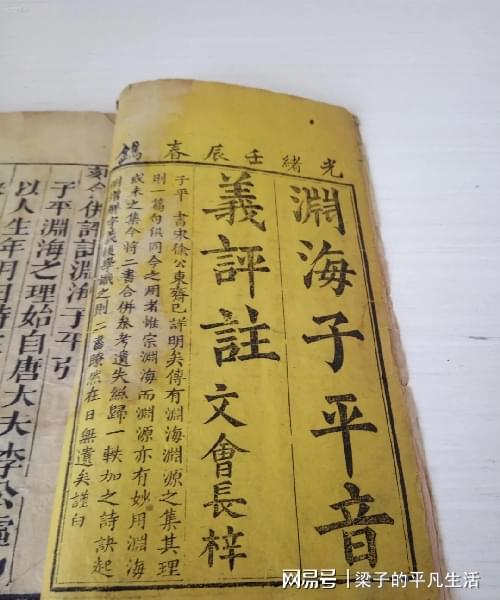 光緒壬辰春鐫
淵海子平音
義評註 文會長梓
子平一書宋徐公東齋已詳明矣傳有淵海淵源之集其理
則一篇句俱同今之用者惟宗淵海而淵源亦有妙用淵海
或未之集今將二書合併參考遺失總歸一帙加之詩訣起
之則二書瞭然在目無遺矣謹白
合併評註淵海子平引
子平淵海之理始自唐大夫李公
以人生年月日時
网易号 | 梁子的平凡生活